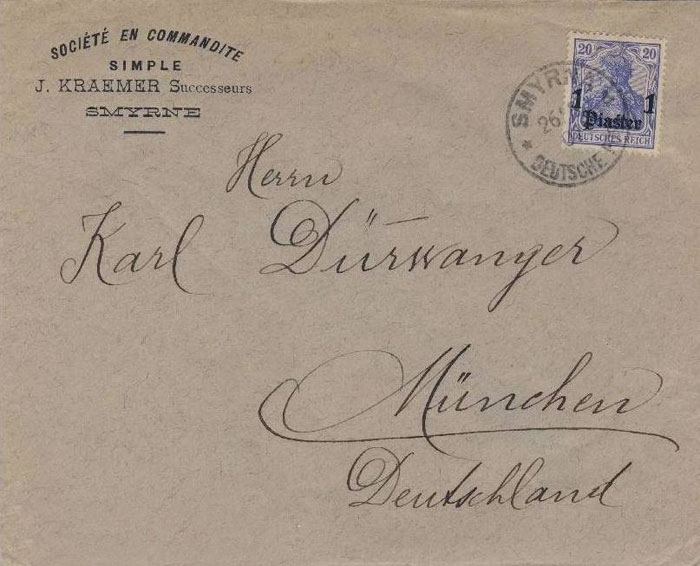 SOCIÉTÉ EN COMMANDITE
SIMPLE
J. KRAEMER Successeurs
SMYRNE
20 20
1 1
Piaster
DEUTSCHES REICH
SMYRNA
26
DEUTSCHE
Herrn
Karl Dürwanger
München
Deutschland